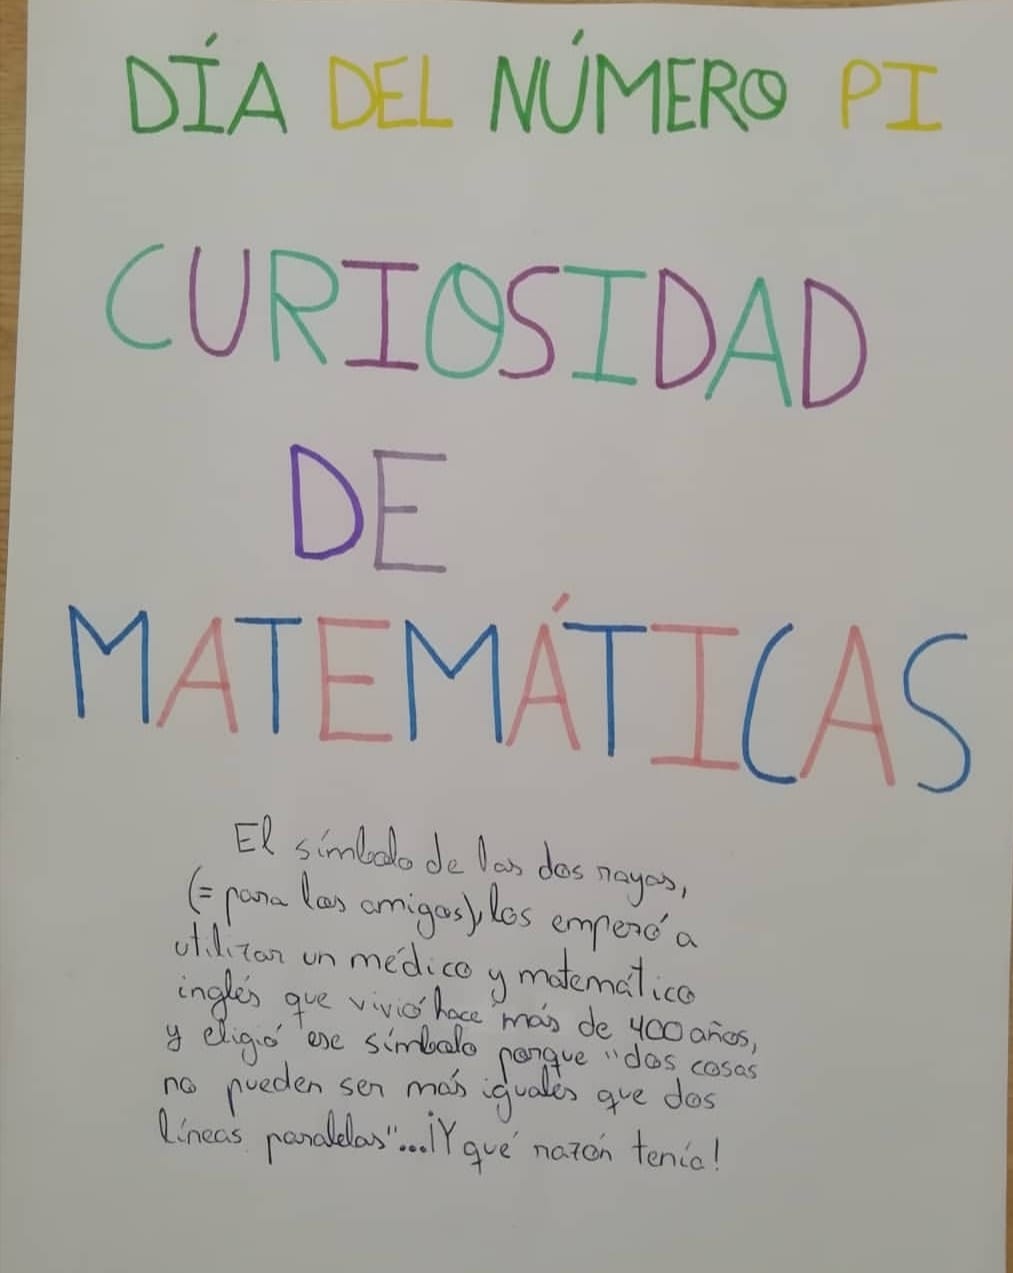 DÍA DEL NÚMERO PI
CURIOSIDAD
DE
MATEMÁTICAS
El símbolo de las dos rayas,
(= para los amigos), los emperó a
utilizar un médico y matemático
inglés que vivió hace más de 400 años,
y eligió ese símbolo porque "dos cosas
no pueden ser más iguales que dos
líneas paralelas"...¡Y qué razón tenía!